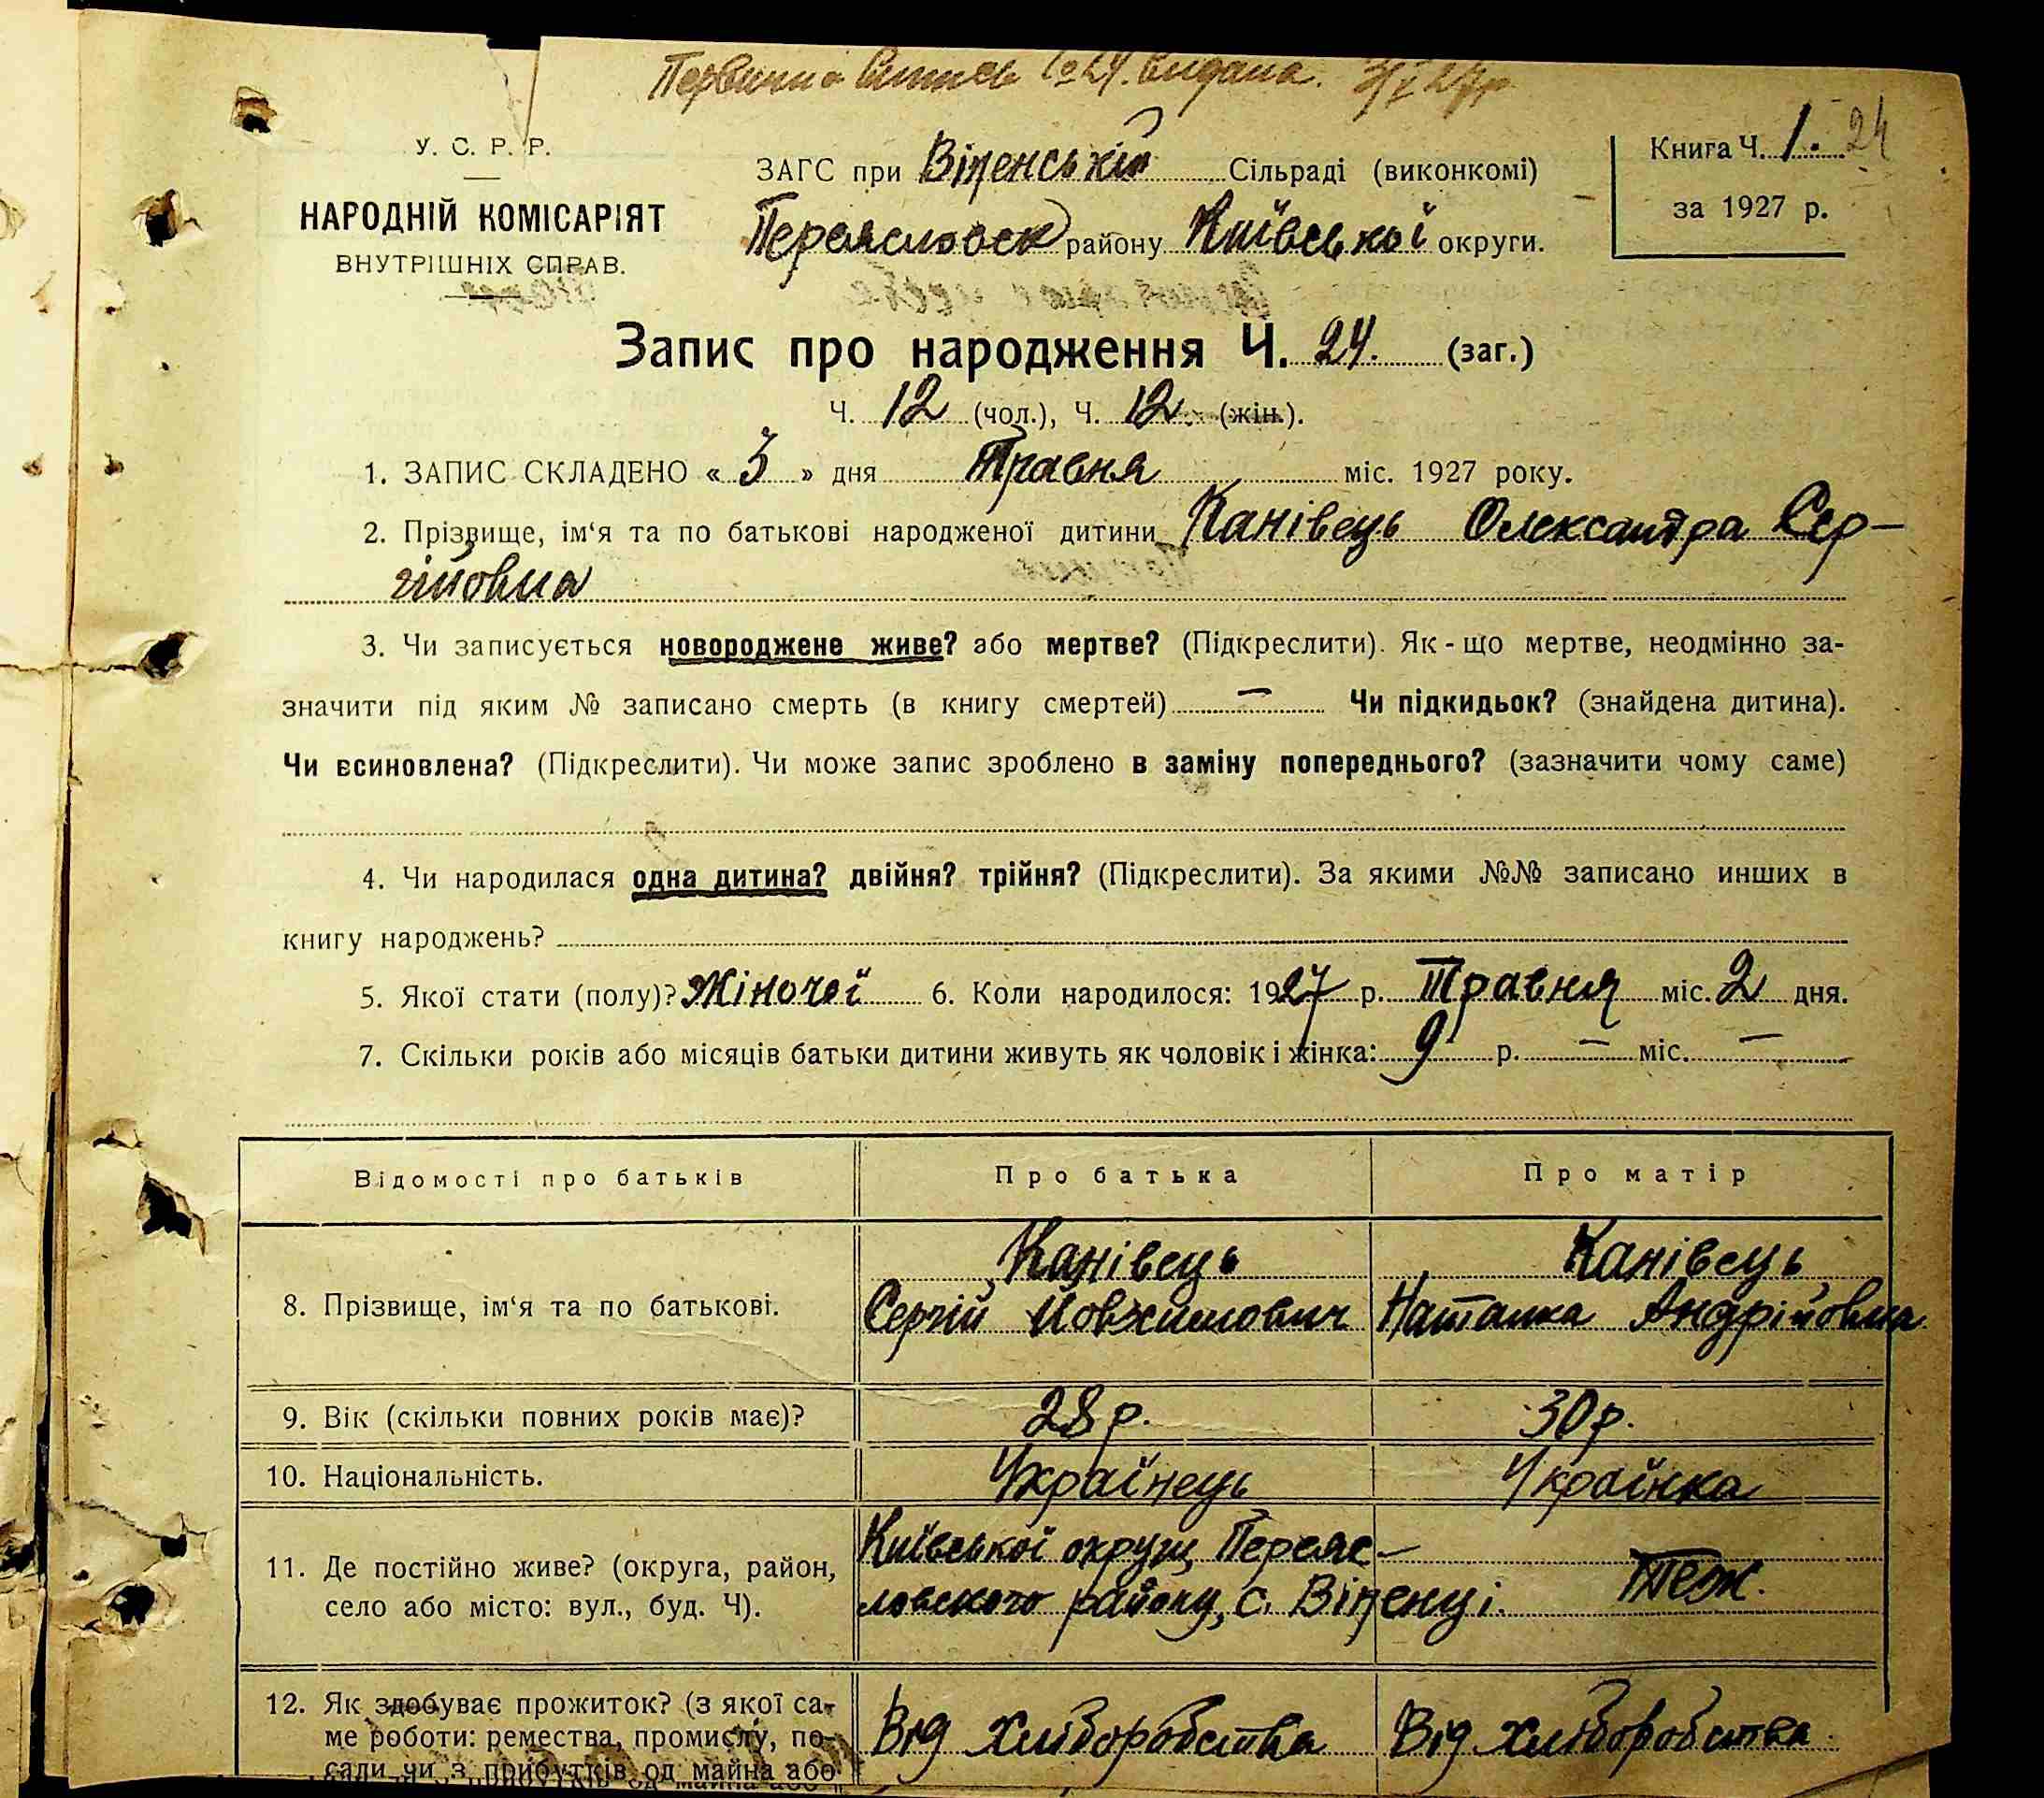 Первична Випись № 24. видана. 3/V 27р.
У. С. Р. Р.
НАРОДНІЙ КОМІСАРІЯТ
ВНУТРІШНІХ СПРАВ.
ЗАГС при Віненській Сільраді (виконкомі)
Переясловск району Київської округи.
Книга Ч. 1. 24
за 1927 р.
Запис про народження Ч. 24. (заг.)
Ч. 12 (чол.), Ч. 12. (жін.).
1. ЗАПИС СКЛАДЕНО « 3 » дня Травня міс. 1927 року.
2. Прізвище, ім‘я та по батькові народженої дитини Канівець Олександра Сер-
гійовна
3. Чи записується новороджене живе? або мертве? (Підкреслити). Як-що мертве, неодмінно за-
значити під яким № записано смерть (в книгу смертей) — Чи підкидьок? (знайдена дитина).
Чи всиновлена? (Підкреслити). Чи може запис зроблено в заміну попереднього? (зазначити чому саме)
4. Чи народилася одна дитина? двійня? трійня? (Підкреслити). За якими №№ записано инших в
книгу народжень?
5. Якої стати (полу)? Жіночої 6. Коли народилося: 1927 р. Травня міс. 2 дня.
7. Скільки років або місяців батьки дитини живуть як чоловік і жінка: 9 р. — міс. —
Відомості про батьків Про батька Про матір
8. Прізвище, ім‘я та по батькові.
Канівець
Сергій Йовхимович
Канівець
Наталка Андрійовна
9. Вік (скільки повних років має)? 28 р. 30 р.
10. Національність. Українець Українка
11. Де постійно живе? (округа, район,
село або місто: вул., буд. Ч).
Київської округи, Переяс-
ловского району, с. Віненці.
Теж.
12. Як здобуває прожиток? (з якої са-
ме роботи: ремества, промислу, по-
сади чи з прибутків од майна або
Від хліборобства
Від хліборобства.